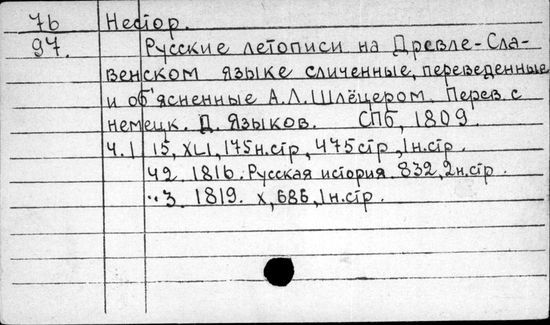 76 Нестор.
97. Русские летописи на Древле-Сла-
венском языке сличенные, переведенные
и об'ясненные А.Л.Шлёцером. Перев. с
немецк. Д. Языков. СПб, 1809.
Ч.1 15, XLI, 175н.стр, 475стр, 1н.стр.
Ч2. 1816. Русская история. 832, 2н.стр.
"3. 1819. X, 686, 1н.стр.